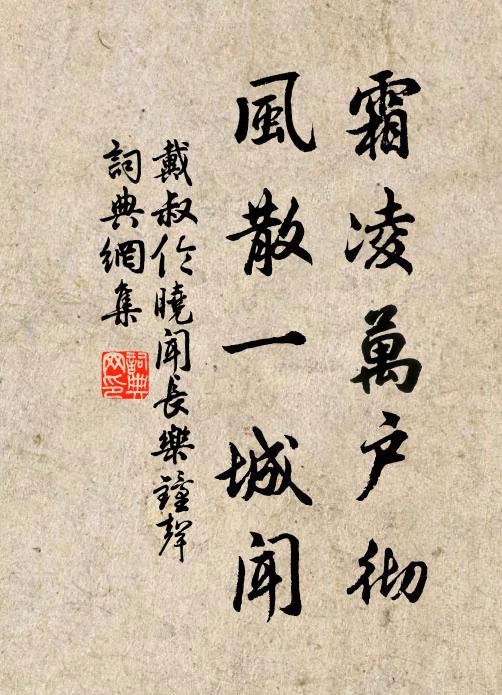 霜凌萬户徹
風散一城聞
戴叔伦曉聞長樂鐘聲
詞典網集
詞典網印